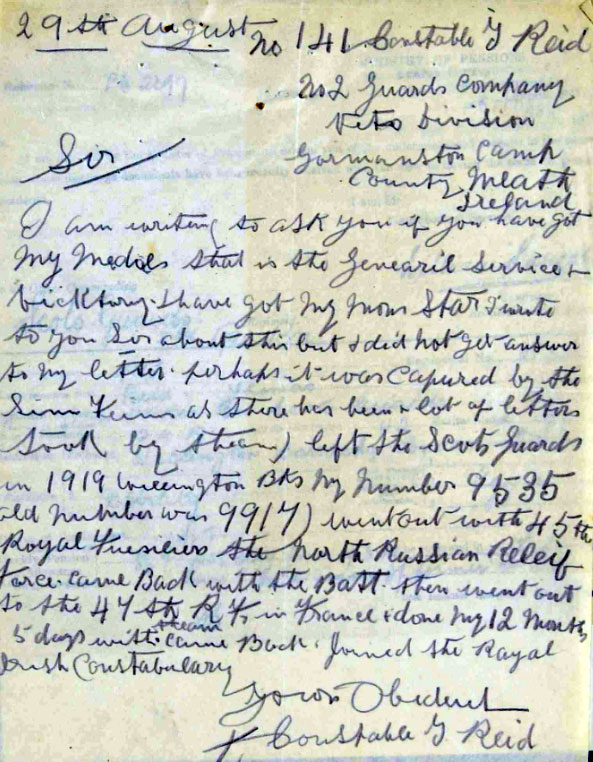 29th August
No 141 Constable J Reid
No 2 Guards Company
Vets Division
Gormanston Camp
County Meath
Ireland
Sir
I am writing to ask you if you have got
My Medels that is the Genearil Service &
Vicktory. I have got My Mons Star I write
to you Sir about this but I did not get answer
to my letter. perhaps it was Capured by the
Sinn Feins as there has been a lot of letters
took by theam) left the Scots Guards
in 1919 Wellington Bks My Number 9535
old number was 9917) went out with 45th
Royal Fuesiliers the North Russian Releif
Force. Came Back with the Batt. then went out
to the 47th R F, in France & done My 12 Months
5 days with theam Came Back. Joined the Royal
Irish Constabulary
Your Obedent
Constable J Reid